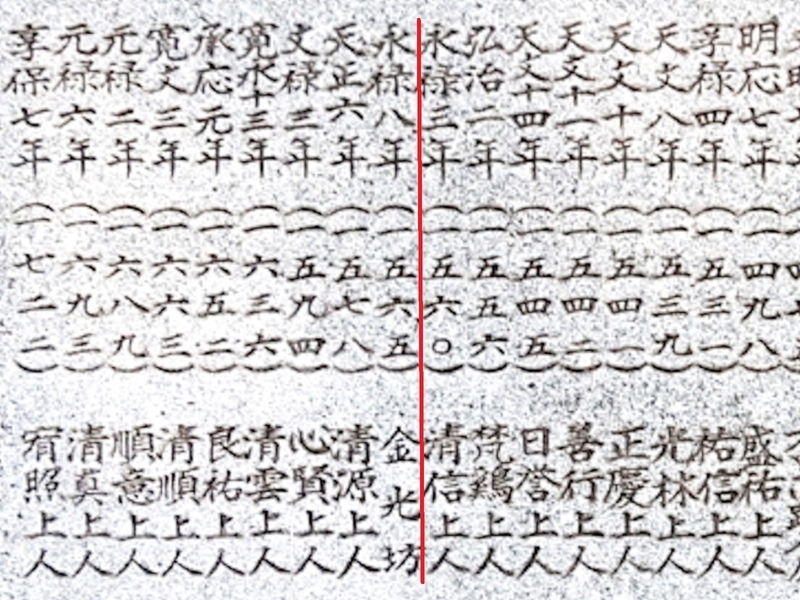 明応七年(一四九八)盛祐上人
享禄四年(一五三一)祐信上人
天文八年(一五三九)光林上人
天文十年(一五四一)正慶上人
天文十一年(一五四二)善行上人
天文十四年(一五四五)日誉上人
弘治二年(一五五六)梵鶏上人
永禄三年(一五六〇)清信上人
永禄八年(一五六五)金光坊
天正六年(一五七八)清源上人
文禄三年(一五九四)心賢上人
寛永十三年(一六三六)清雲上人
承応元年(一六五二)良祐上人
寛文三年(一六六三)清順上人
元禄二年(一六八九)順意上人
元禄六年(一六九三)清真上人
享保七年(一七二二)宥照上人